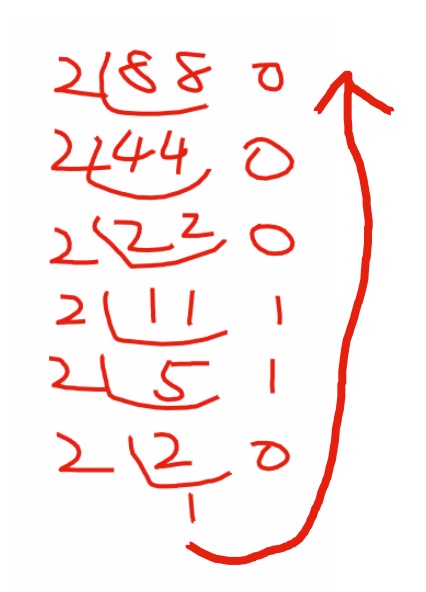 2 88 0
2 44 0
2 22 0
2 11 1
2 5 1
2 2 0
1